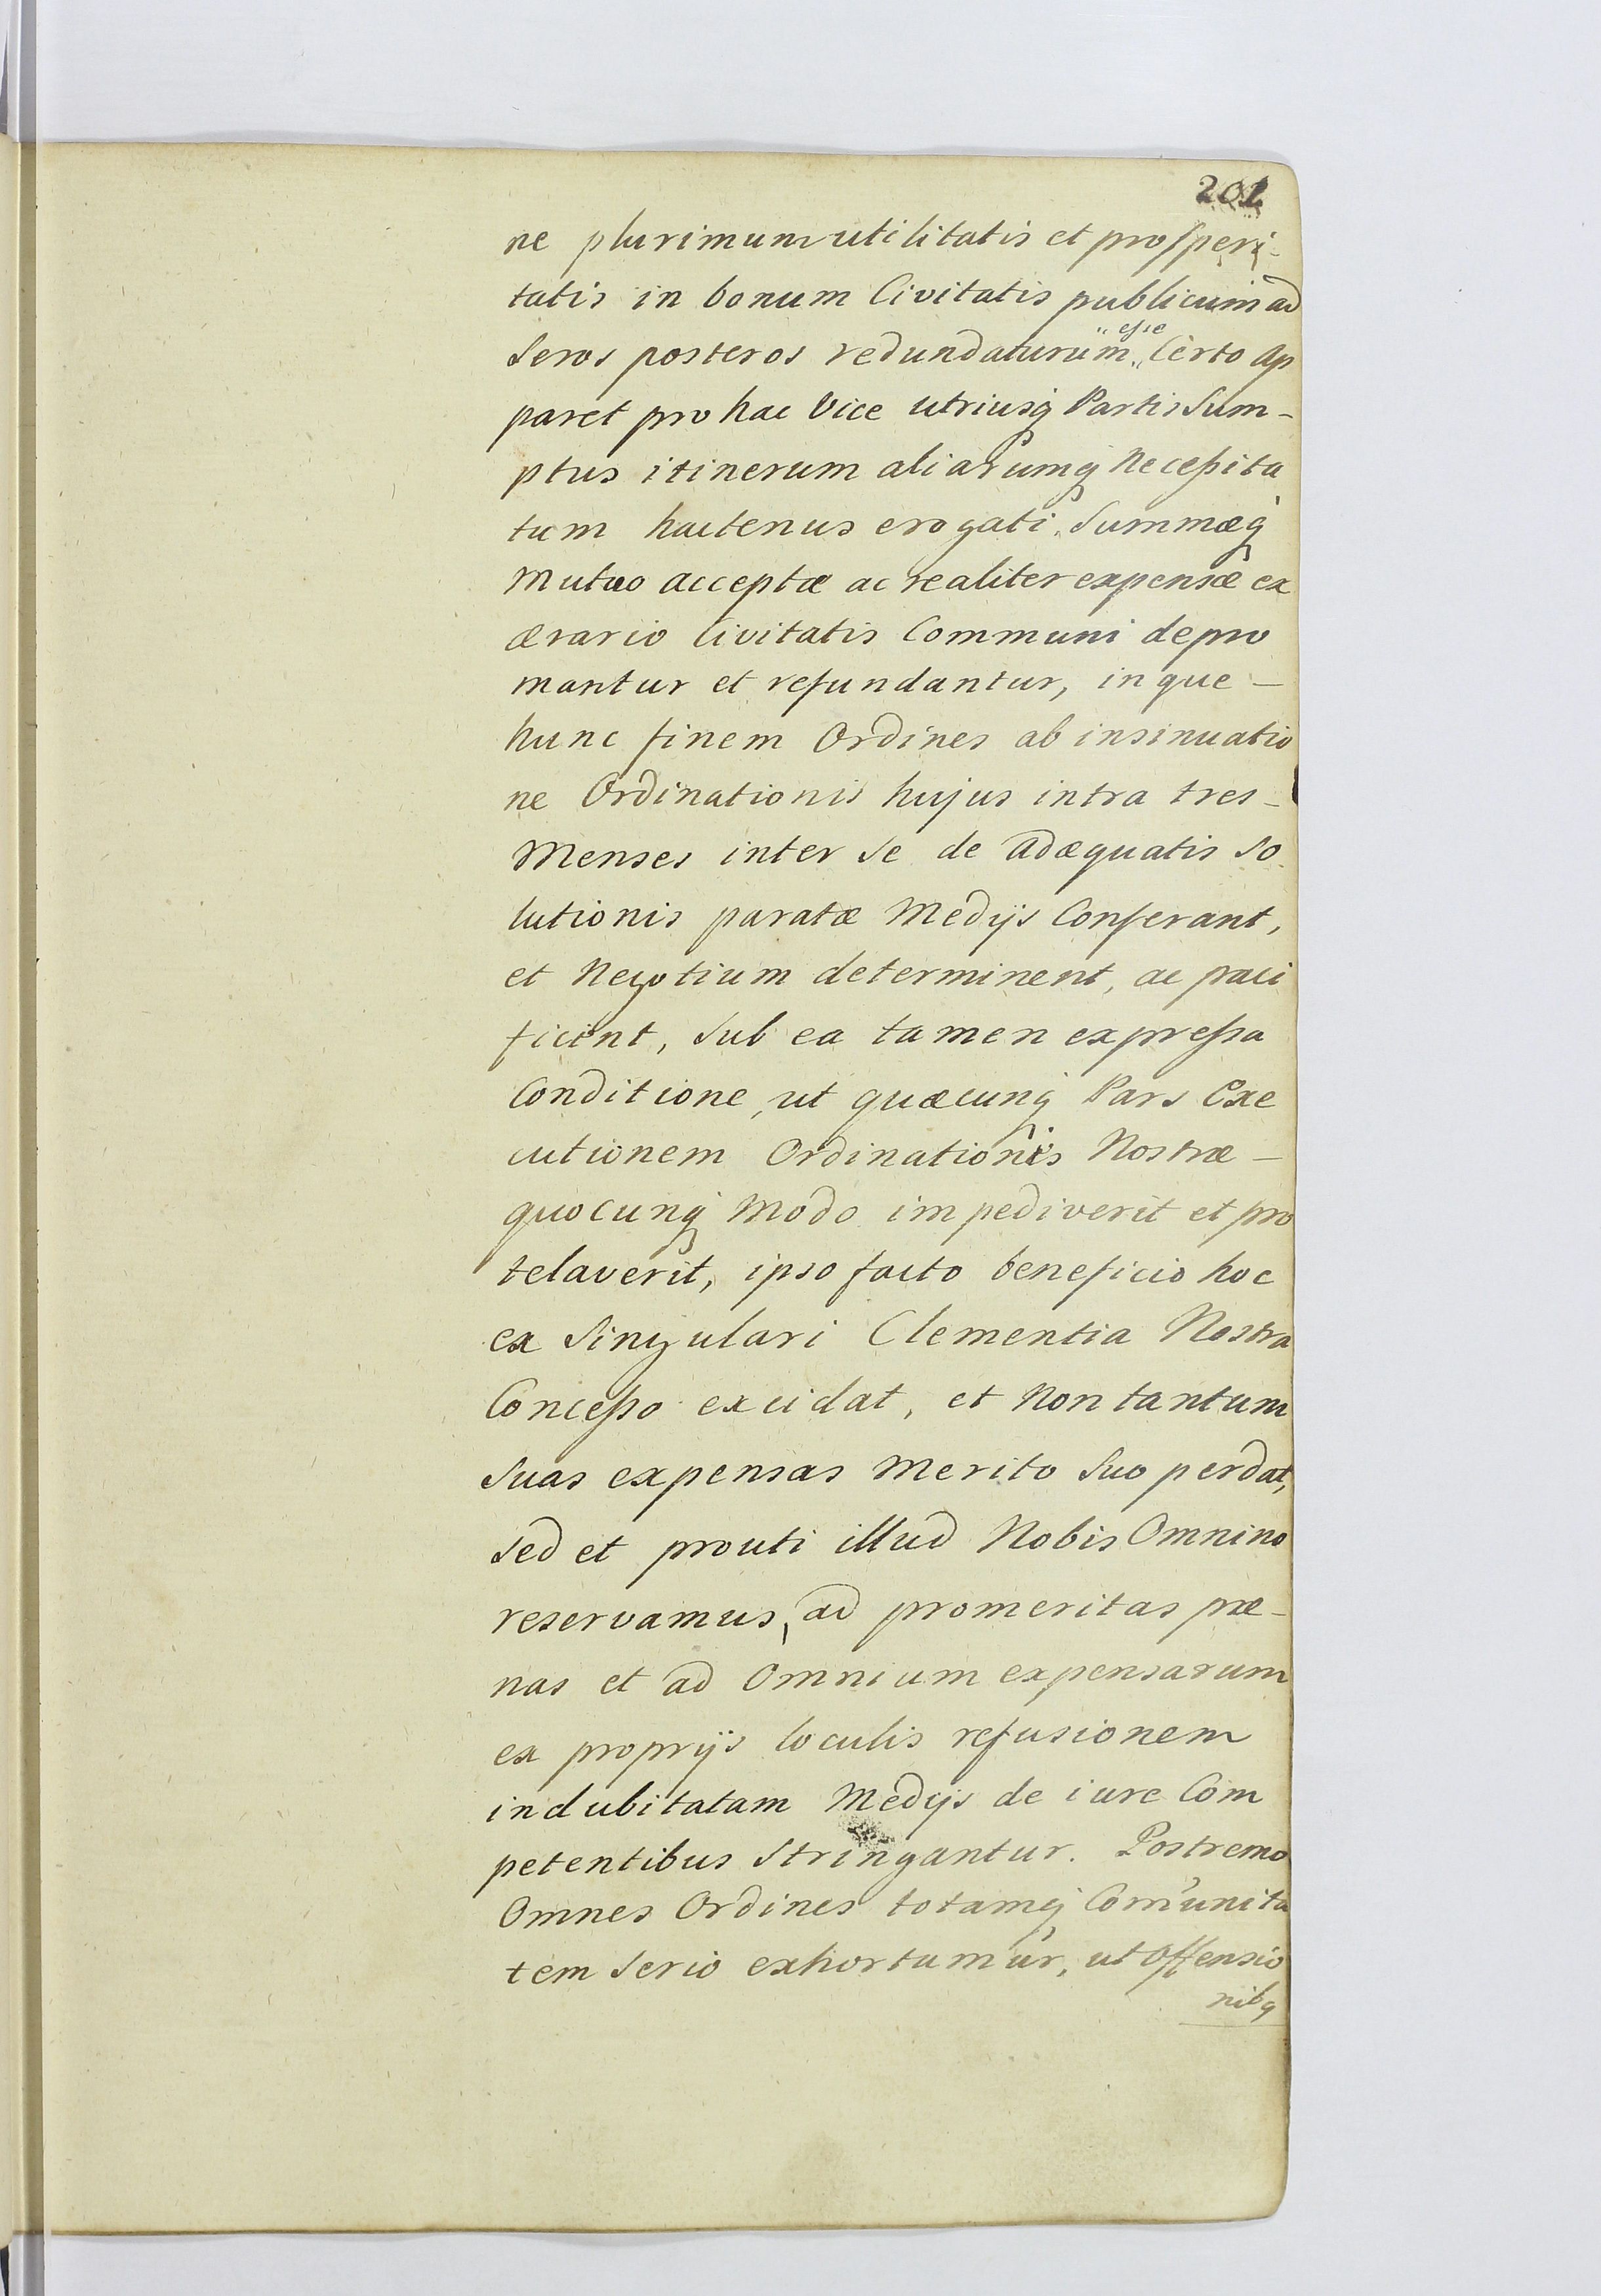 201
ne plurimum utilitatis et prosperi-
tatis in bonum Civitatis publicum ad
seros posteros redundaturum „esse„ Certo ap
paret pro hac Vice utriusq Partis Sum-
ptus itinerum aliarumq Necessita
tum hactenus erogati, Summæq
Mutuo acceptæ ac realiter expensæ ex
ærario Civitatis Communi depro
mantur et refundantur, inque-
hunc finem Ordines ab insinuatio
ne Ordinationis hujus intra tres-
Menses inter se de adæquatis so
lutionis paratæ Medijs Conferant,
et Negotium determinent, ac paci
ficent, Sub ea tamen expressa
Conditione, ut quæcunq Pars Exe
cutionem Ordinationis Nostræ-
quocunq Modo impediverit et pro
telaverit, ipso facto beneficio hoc
ex Singulari Clementia Nostra
Concesso excidat, et Non tantum
Suas expensas Merito Suo perdat,
sed et prouti illud Nobis Omnino
reservamus, ad promeritas pæ-
nas et ad Omnium expensarum
ex proprijs loculis refusionem
indubitatam Medijs de iure Com
petentibus Stringantur. Postremo
Omnes Ordines totamq Com̃unita
tem Serio exhortamur, ut Offensio
nibq